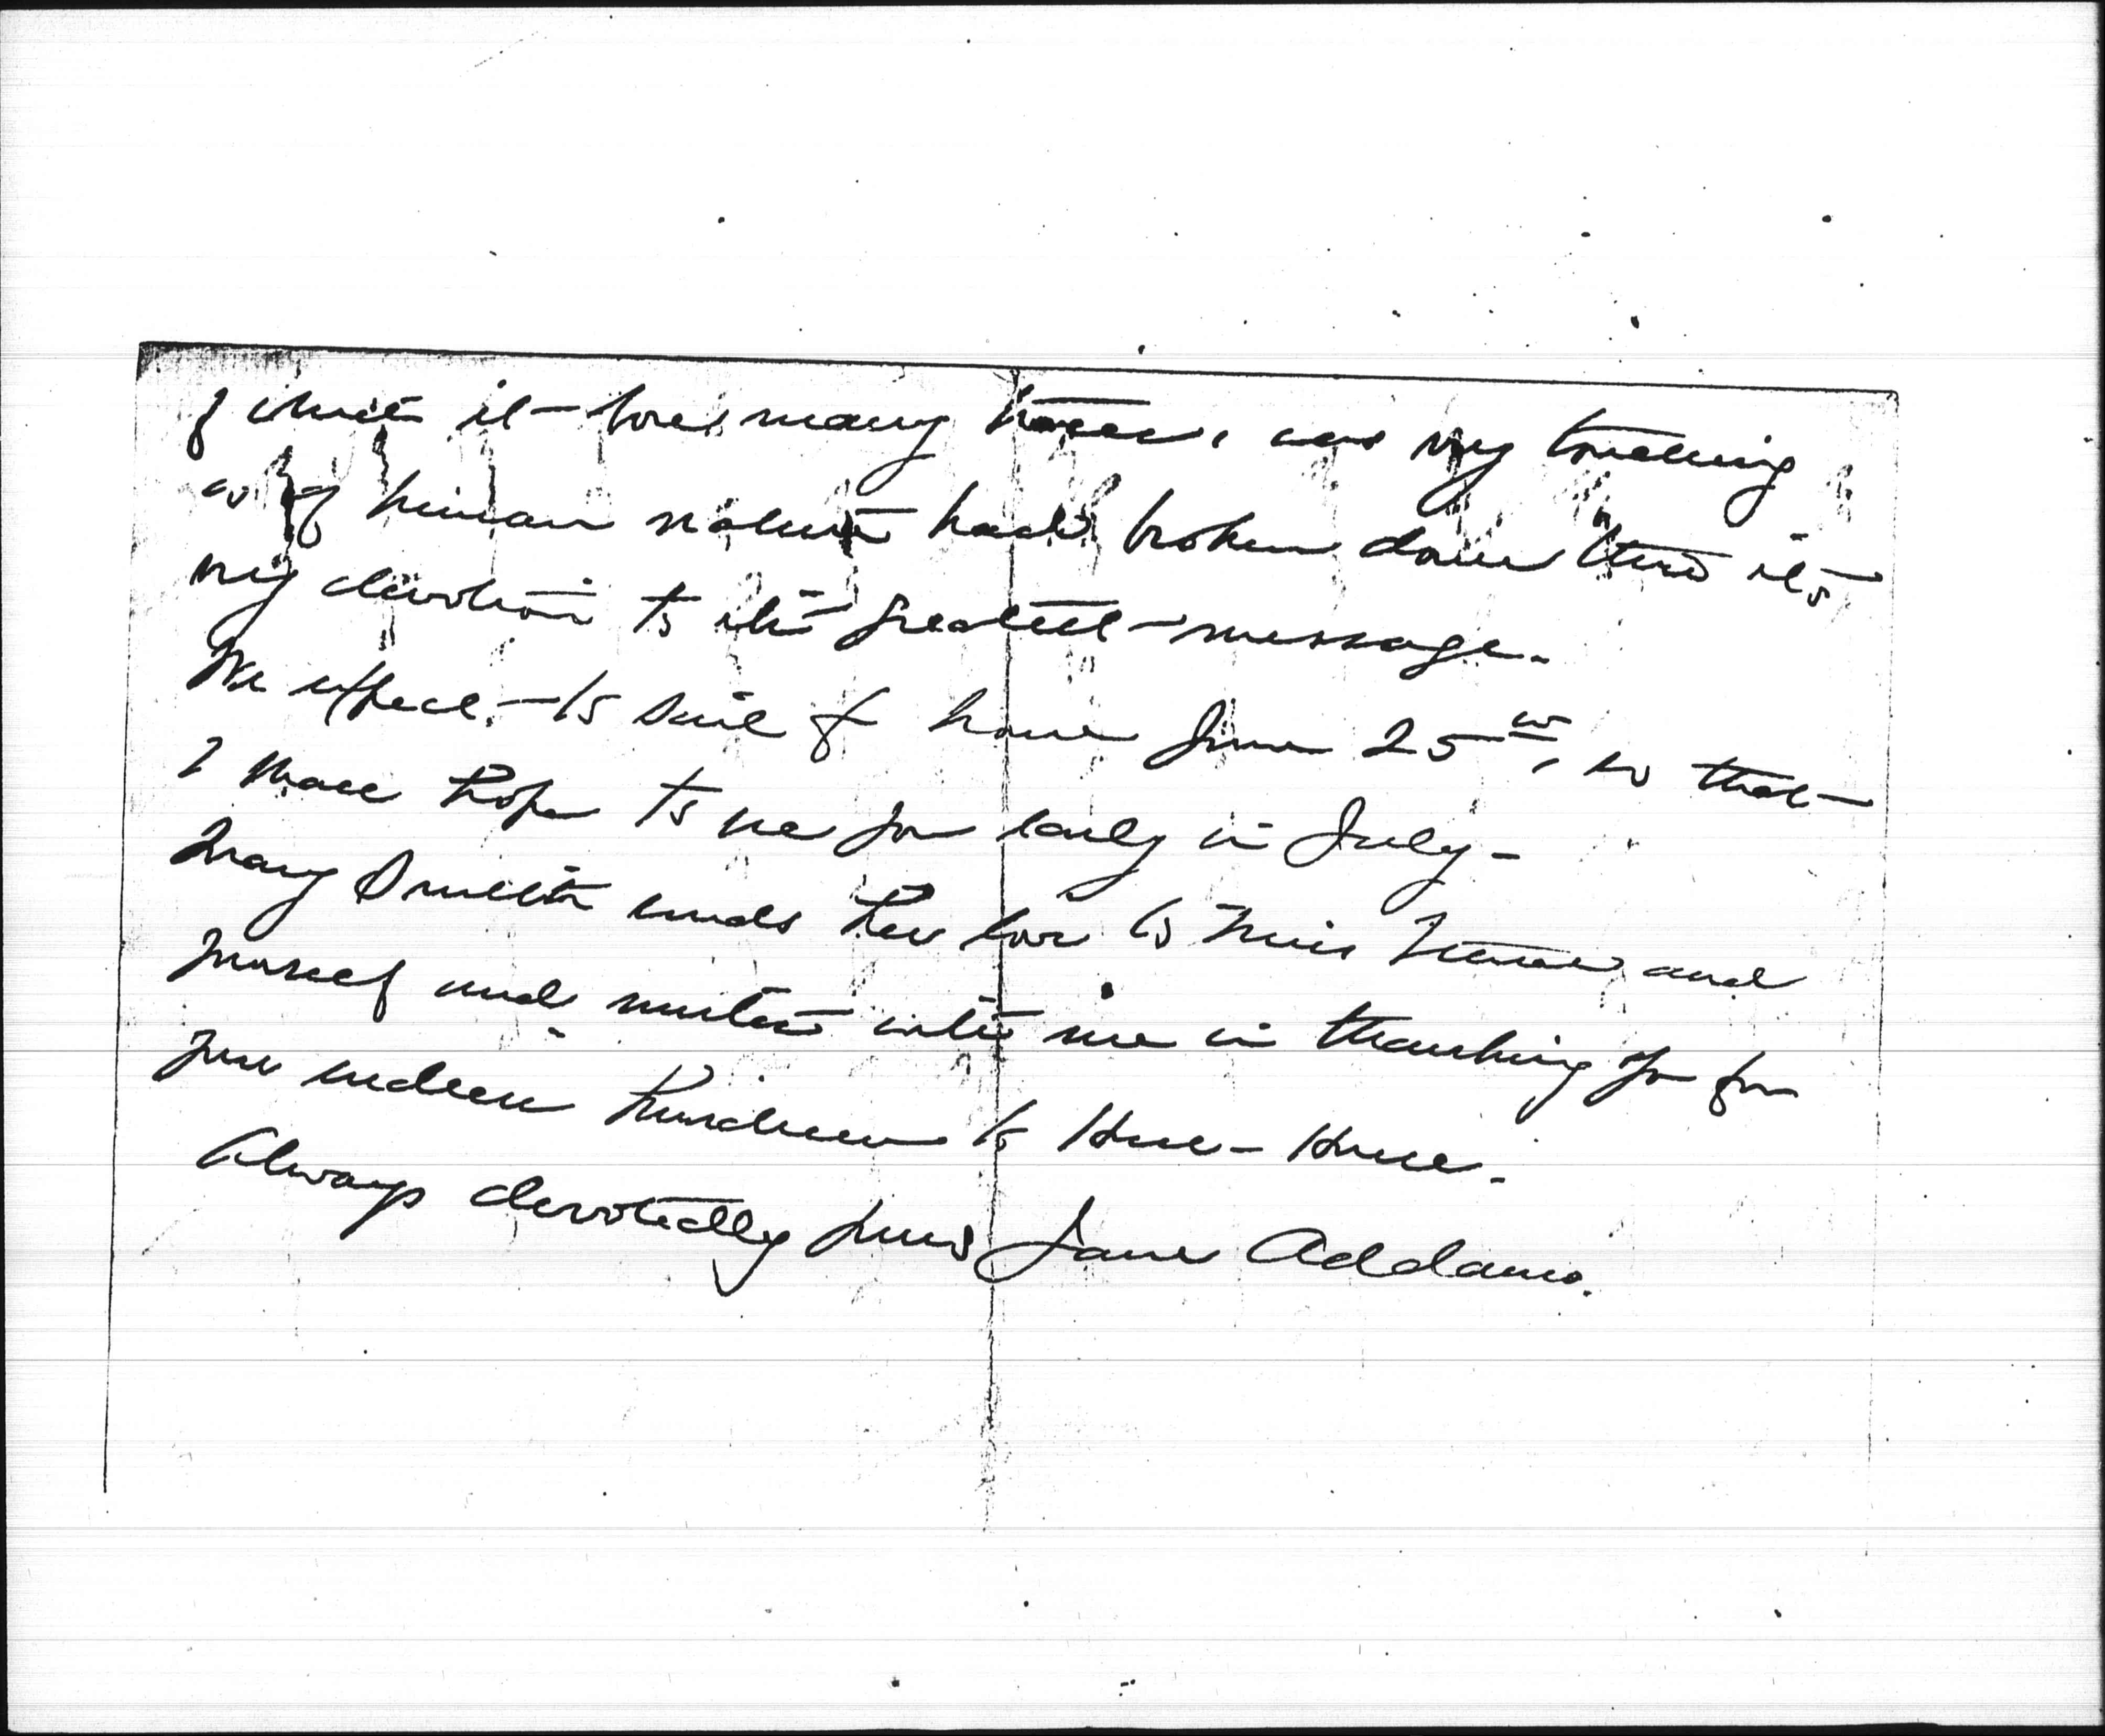 of which it bore many traces, was very touching
as if human nature had broken down thro its
very devotion to its greatest message.
We expect to sail for home June 25th, so that
I shall hope to see you early in July -
Mary Smith sends her love to Miss and
yourself and unites with me in thanking you for
your endless kindness to Hull-House.
Always devotedly yours Jane Addams.